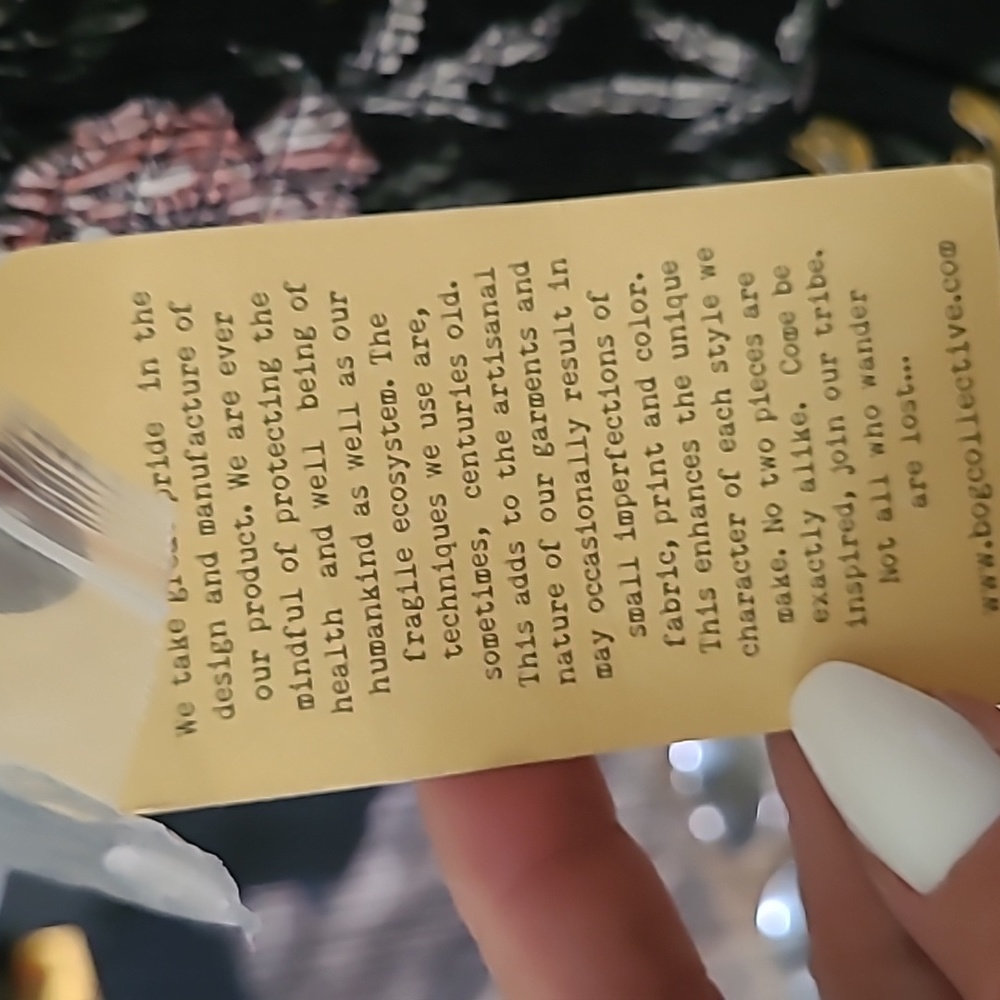 We take great pride in the
design and manufacture of
our product. We are ever
mindful of protecting the
health and well being of
humankind as well as our
fragile ecosystem. The
techniques we use are,
sometimes, centuries old.
This adds to the artisanal
nature of our garments and
may occasionally result in
small imperfections of
fabric, print and color.
This enhances the unique
character of each style we
make. No two pieces are
exactly alike. Come be
inspired, join our tribe.
Not all who wander
are lost...
www.bogcollective.com